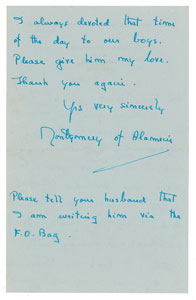 I always devoted that time
of the day to our boys.
Please give him my love.
Thank you again.
Yrs very sincerely
Montgomery of Alamein
Please tell your husband that
I am writing him via the
F.O. Bag.